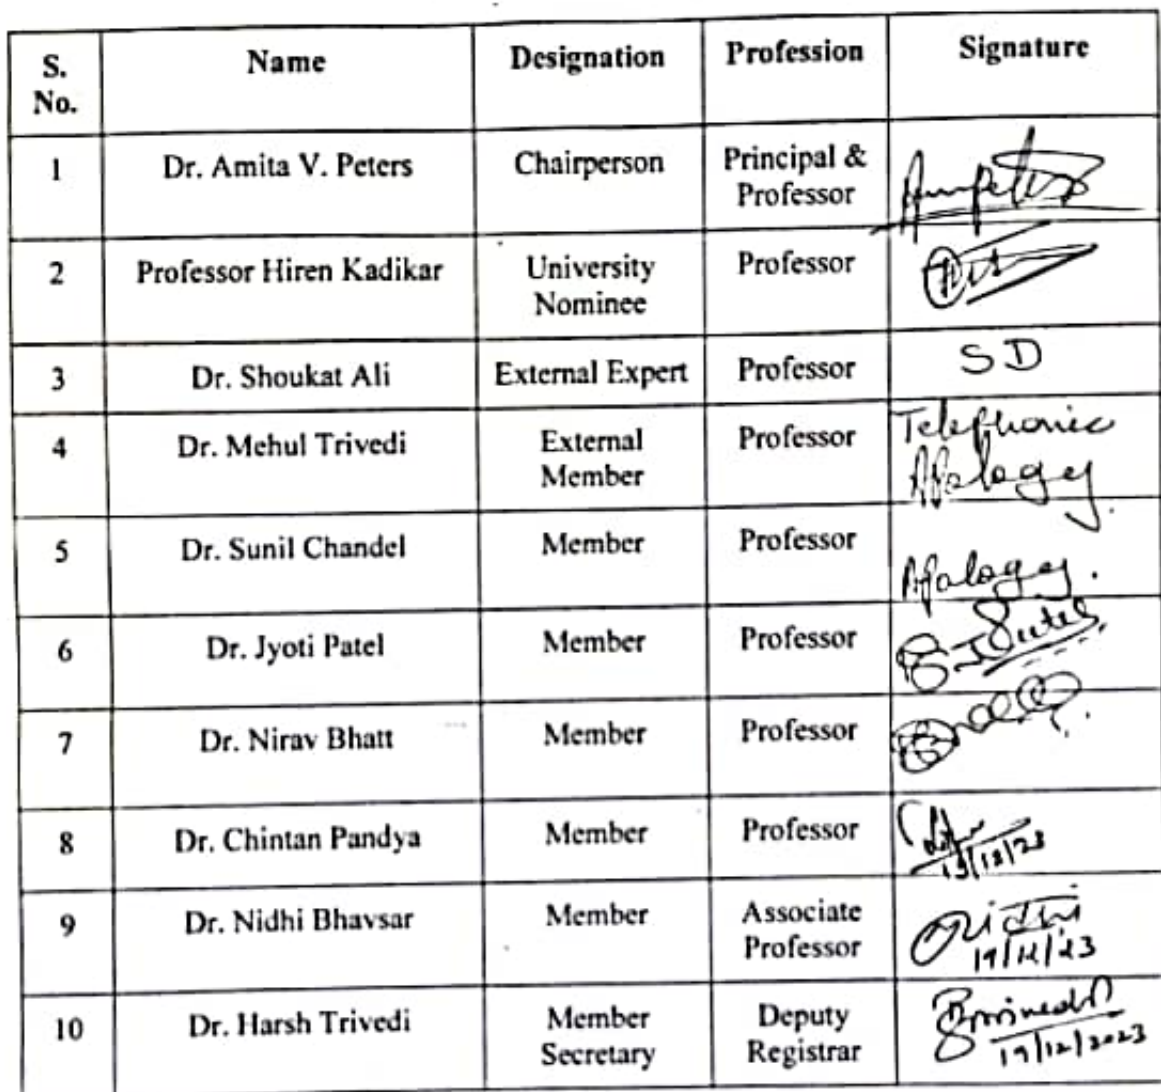 S. No. Name Designation Profession Signature
1 Dr. Amita V. Peters Chairperson Principal & Professor
2 Professor Hiren Kadikar University Nominee Professor
3 Dr. Shoukat Ali External Expert Professor SD
4 Dr. Mehul Trivedi External Member Professor Telephonic Apology.
5 Dr. Sunil Chandel Member Professor Apology.
6 Dr. Jyoti Patel Member Professor
7 Dr. Nirav Bhatt Member Professor
8 Dr. Chintan Pandya Member Professor 19/12/23
9 Dr. Nidhi Bhavsar Member Associate Professor Nidhi 19/12/23
10 Dr. Harsh Trivedi Member Secretary Deputy Registrar 19/12/2023